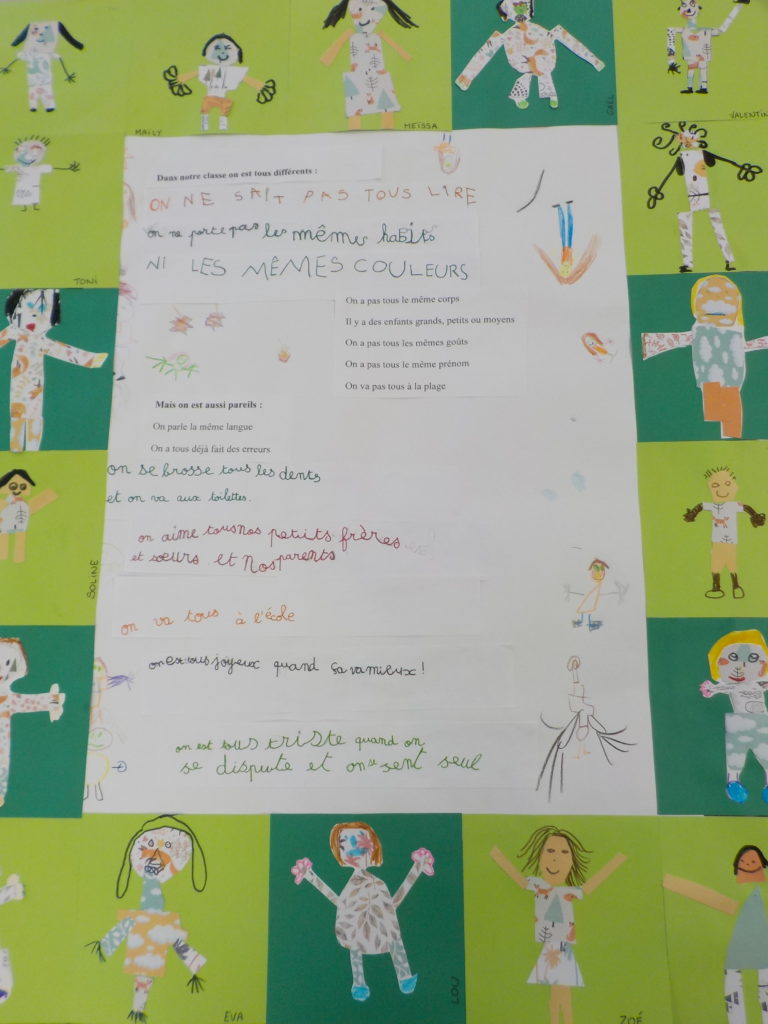 MAÏLY
MEÏSSA
GAËL
VALENTIN
TONI
Dans notre classe on est tous différents :
ON NE SAIT PAS TOUS LIRE
on ne porte pas les mêmes habits
NI LES MÊMES COULEURS
On a pas tous le même corps
Il y a des enfants grands, petits ou moyens
On a pas tous les mêmes goûts
On a pas tous le même prénom
On va pas tous à la plage
Mais on est aussi pareils :
On parle la même langue
On a tous déjà fait des erreurs
on se brosse tous les dents
et on va aux toilettes.
on aime tous nos petits frères
et sœurs et Nos parents
on va tous à l'école
on est tous joyeux quand sa va mieux !
on est tous triste quand on
se dispute et on se sent seul
SOLINE
EVA
LOU
ZOÉ